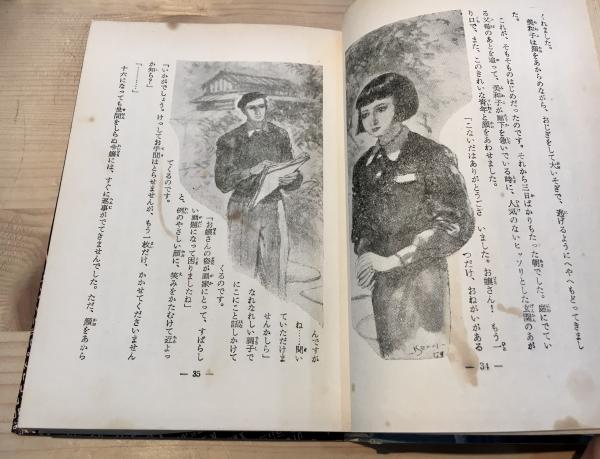 くれました。
美和子は顔をあからめながら、おじぎをして大いそぎで、逃げるようにへやへもどってきまし
た。
これが、そもそものはじめだったのです。それから三日ばかりもたった朝でした。庭にでてい
る父母のあとを追って、美和子が廊下を急いでいる時に、人気のないヒッソリとした玄関のあが
り口で、また、このきれいな青年と顔をあわせました。
「こないだはありがとうござ
いました。お嬢さん！ もう一
つだけ、おねがいがある
— 34 —
んですが
ね……聞い
ていただけま
せんかしら」
なれなれしい調子で
にこにこと話しかけて
くるのです。
「お嬢さんの姿が画家にとって、すばらし
い画題になって困りましたね」
と、例のやさしい顔に、笑みをかたむけて近よっ
てくるのです。
「いかがでしょう。けっしてお手間はとらせませんが、もう一枚だけ、かかせてくださいません
か知ら？」
「………」
十六になっても世間をしらぬ令嬢には、すぐに返事がでてきませんでした。ただ、顔をあから
— 35 —